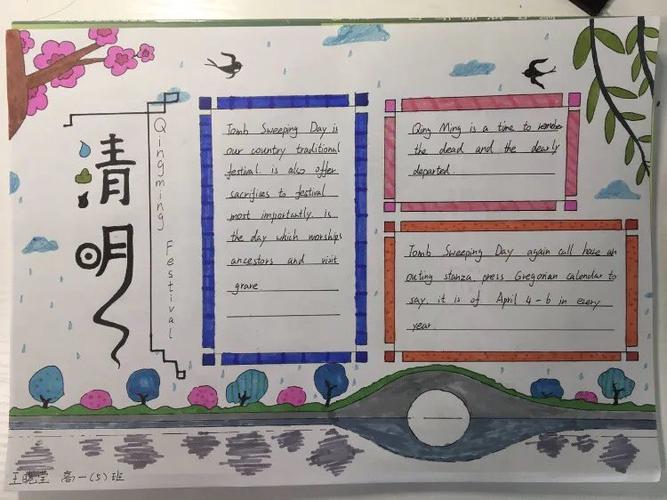 清明
Qingming Festival
Tomb Sweeping Day is
our country traditional
festival. is also offer
sacrifices to festival
most importantly is
the day which worships
ancestors and visit
grave
Qing Ming is a time to remember
the dead and the dearly
departed
Tomb Sweeping Day again call have an
outing stanza press Gregorian calendar to
say, it is of April 4-6 in every
year.
高一(5)班